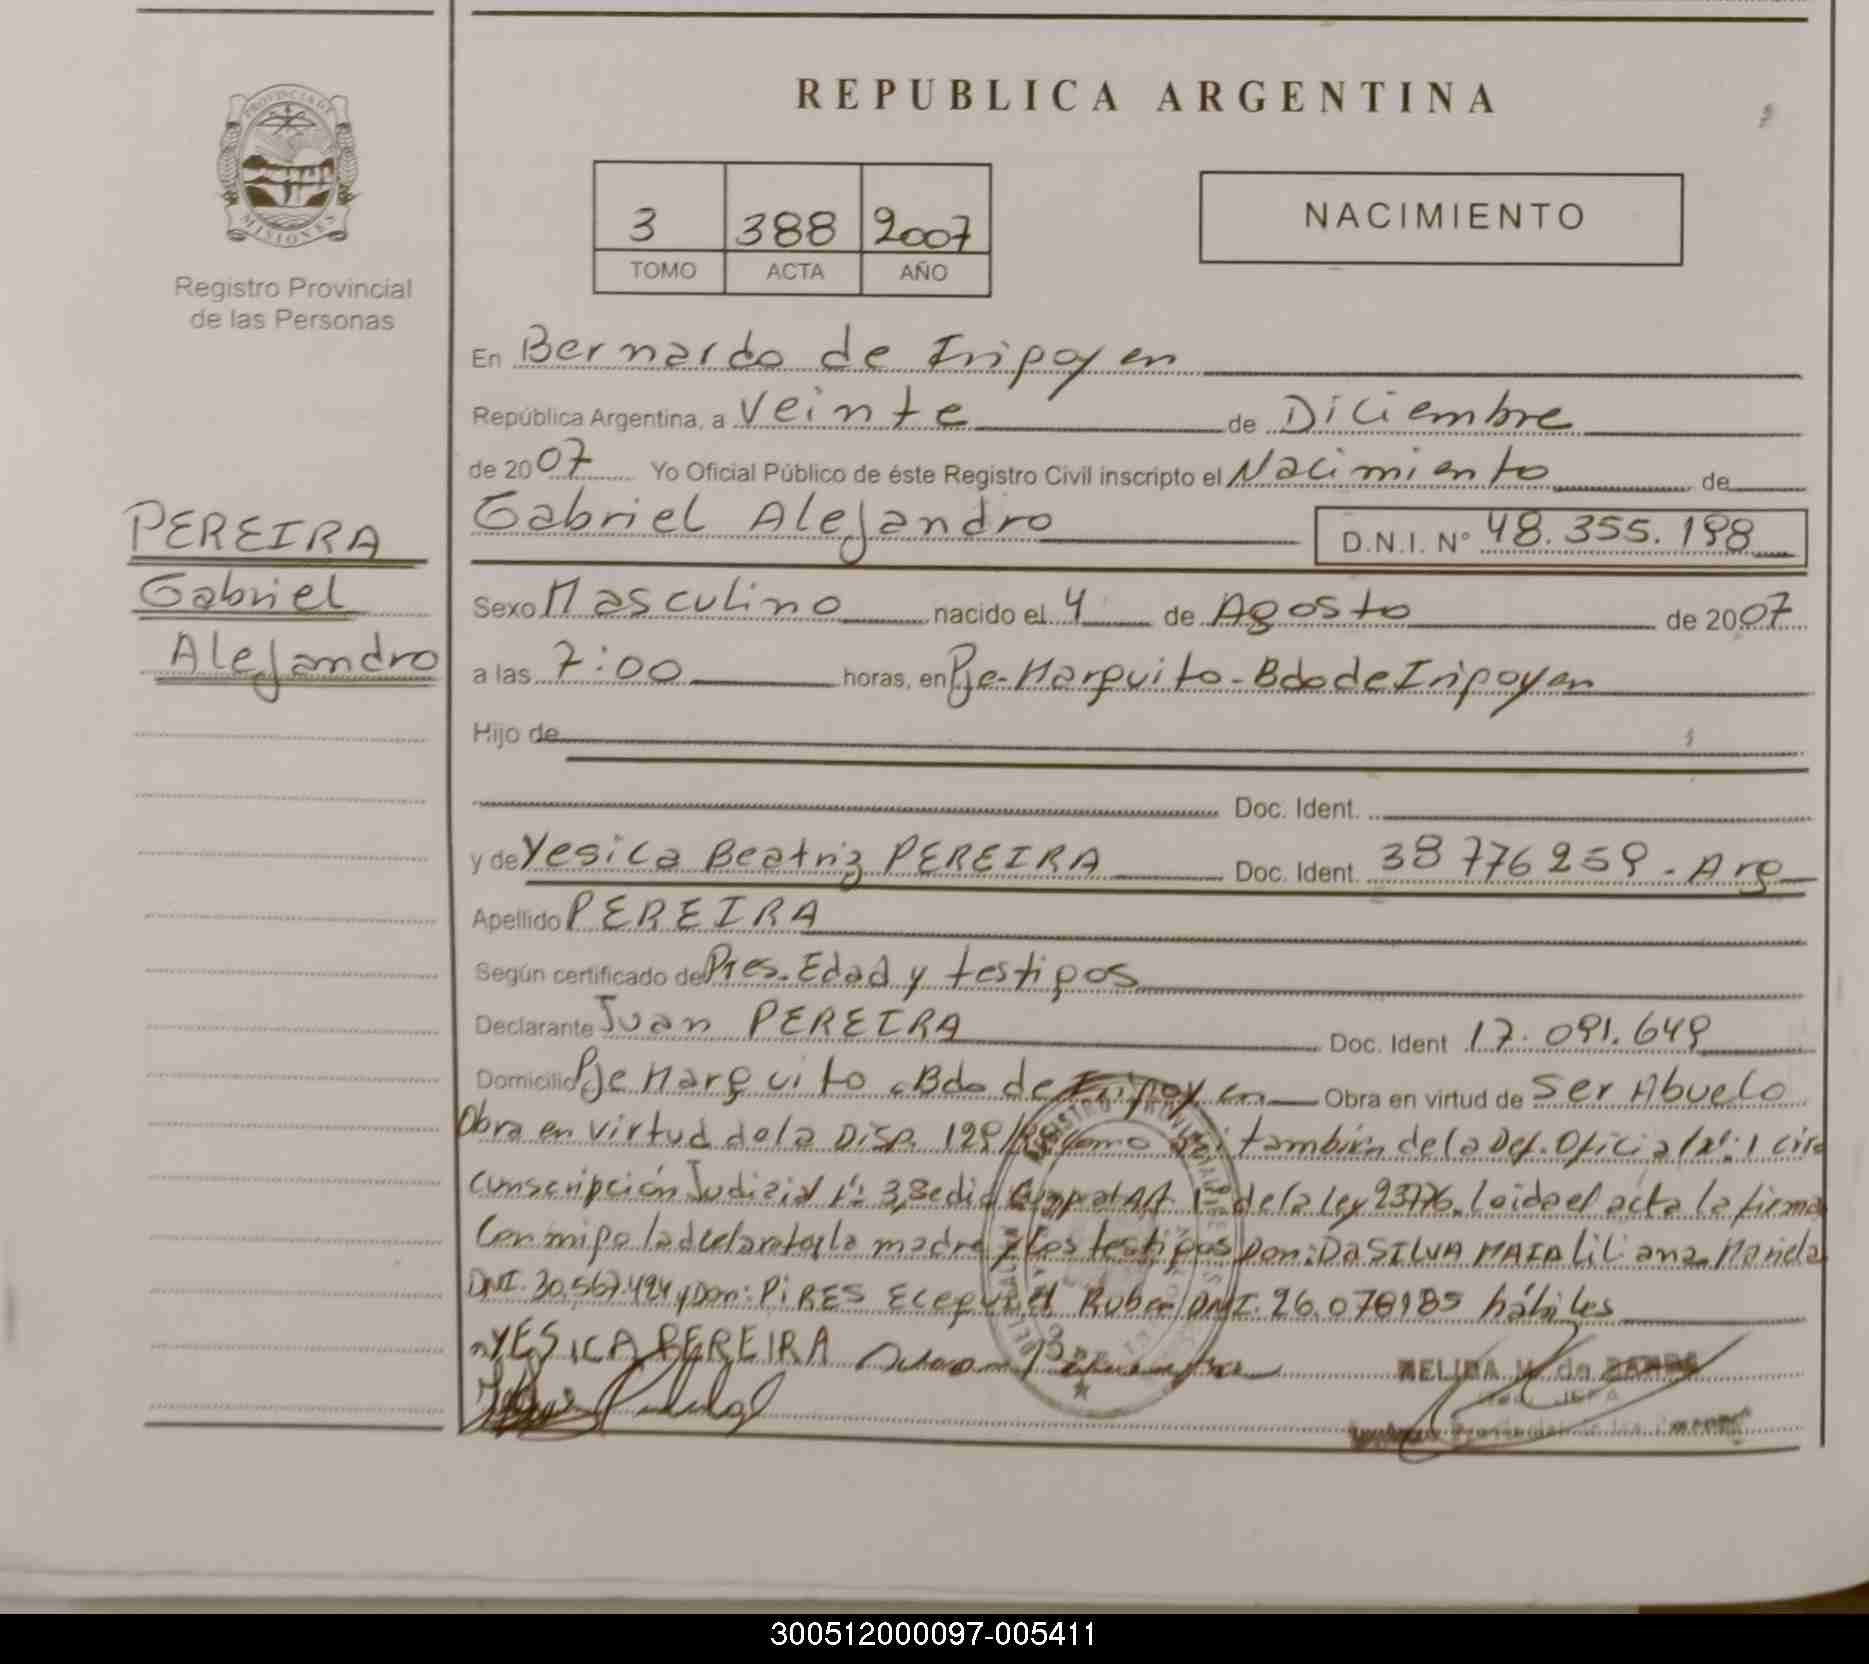 REPUBLICA ARGENTINA
PROVINCIA DE
MISIONES
Registro Provincial
de las Personas
3 388 2007
TOMO ACTA AÑO
NACIMIENTO
En Bernardo de Iripoyen
República Argentina, a Veinte de Diciembre
de 2007 Yo Oficial Público de éste Registro Civil inscripto el Nacimiento de
Gabriel Alejandro D.N.I. N° 48.355.198
PEREIRA
Gabriel
Alejandro
Sexo Masculino nacido el 4 de Agosto de 2007
a las 7:00 horas, en Pje-Marquito-Bdo de Iripoyen
Hijo de
Doc. Ident.
y de Yesica Beatriz PEREIRA Doc. Ident. 38776259-Arg
Apellido PEREIRA
Según certificado de Pres. Edad y testipos
Declarante Juan PEREIRA Doc. Ident 17.091.649
Domicilio Pje Marquito - Bdo de Iripoyen Obra en virtud de Ser Abuelo
Obra en virtud de la Disp. 129/ como también de la Def. Oficial N°: 1 cir
cunscripción Judicial N°: 3, de la Ley 23776. Leida el acta la firma
Conmipo la declarante, la madre y los testipos Don: DA SILVA MAIA Liliana Mariela
DNI. 30.567.424 y Don: PIRES Ecequiel Ruben DNI. 26.078185 hábiles
YESICA PEREIRA
NELIDA de
JEFA
Provincial de las
300512000097-005411